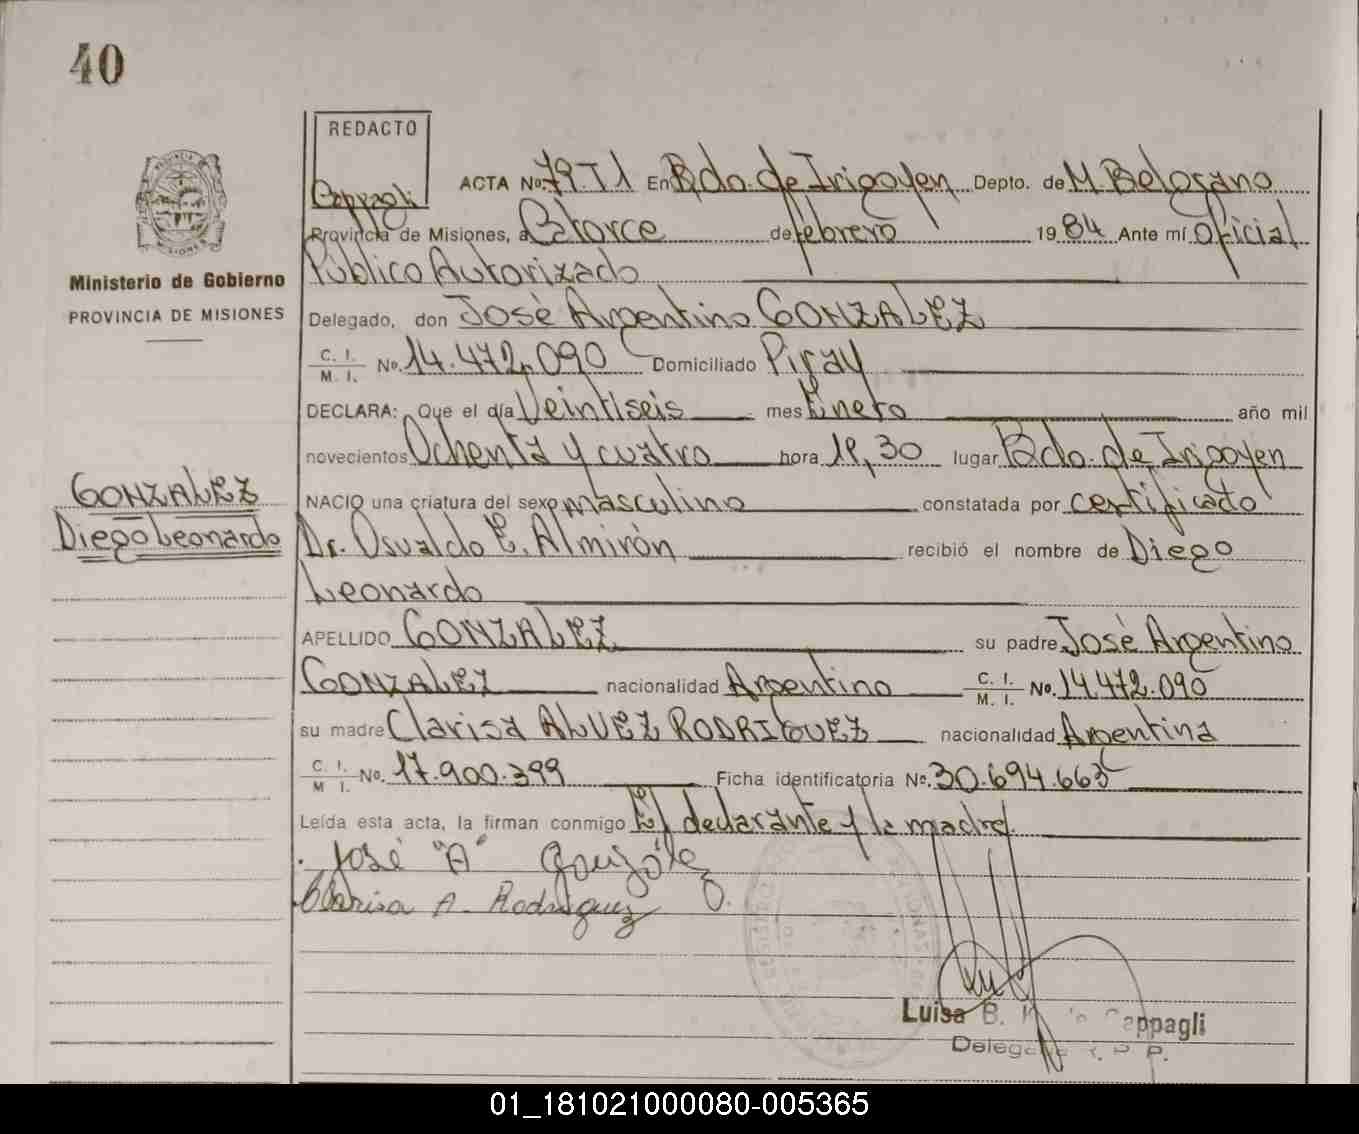 40
REDACTO
Cappagli
ACTA No. 79.T1 En Bdo. de Irigoyen Depto. de M. Belgrano
Provincia de Misiones, a Catorce de febrero 1984 Ante mí Oficial
Público Autorizado
Delegado, don José Argentino GONZALEZ
C. I. M. I. No. 14.472.090 Domiciliado Piray
DECLARA: Que el día Veintiseis mes Enero año mil
novecientos Ochenta y cuatro hora 19,30 lugar Bdo. de Irigoyen
NACIO una criatura del sexo masculino constatada por certificado
Dr. Osvaldo E. Almirón recibió el nombre de Diego
Leonardo
APELLIDO GONZALEZ su padre José Argentino
GONZALEZ nacionalidad Argentino C. I. M. I. No. 14.472.090
su madre Clarisa ALVEZ RODRIGUEZ nacionalidad Argentina
C. I. M I. No. 17.900.399 Ficha identificatoria No. 30.694.663
Leída esta acta, la firman conmigo El declarante y la madre.
José "A" González
Clarisa A. Rodriguez
Luisa B. Cappagli
Delegada R. P. P.
PROVINCIA DE MISIONES
Ministerio de Gobierno
PROVINCIA DE MISIONES
GONZALEZ
Diego Leonardo
01_181021000080-005365